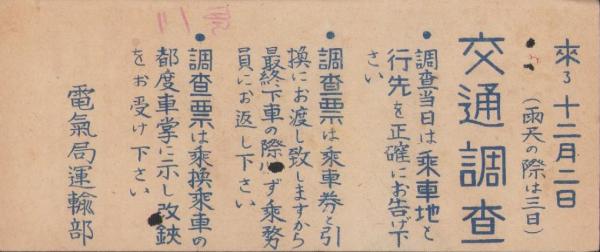 來ル十二月二日
(雨天の際は三日)
交通調査
•調査当日は乗車地と
行先を正確にお告げ下
さい
•調査票は乗車券と引
換にお渡し致しますから
最終下車の際必ず乗務
員にお返し下さい
•調査票は乗換乗車の
都度車掌に示し改鋏
をお受け下さい
電氣局運輸部